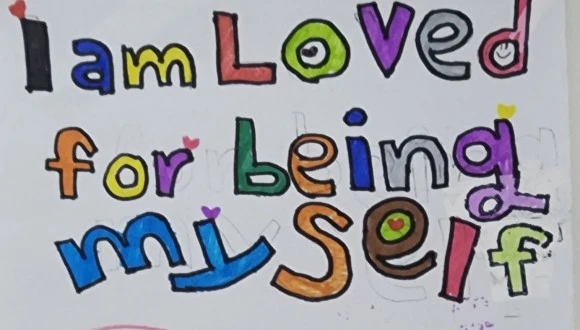 I am Loved
for being
myself